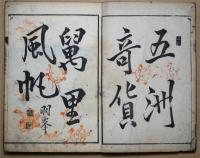 五洲
奇貨
萬里
風帆
羽峯